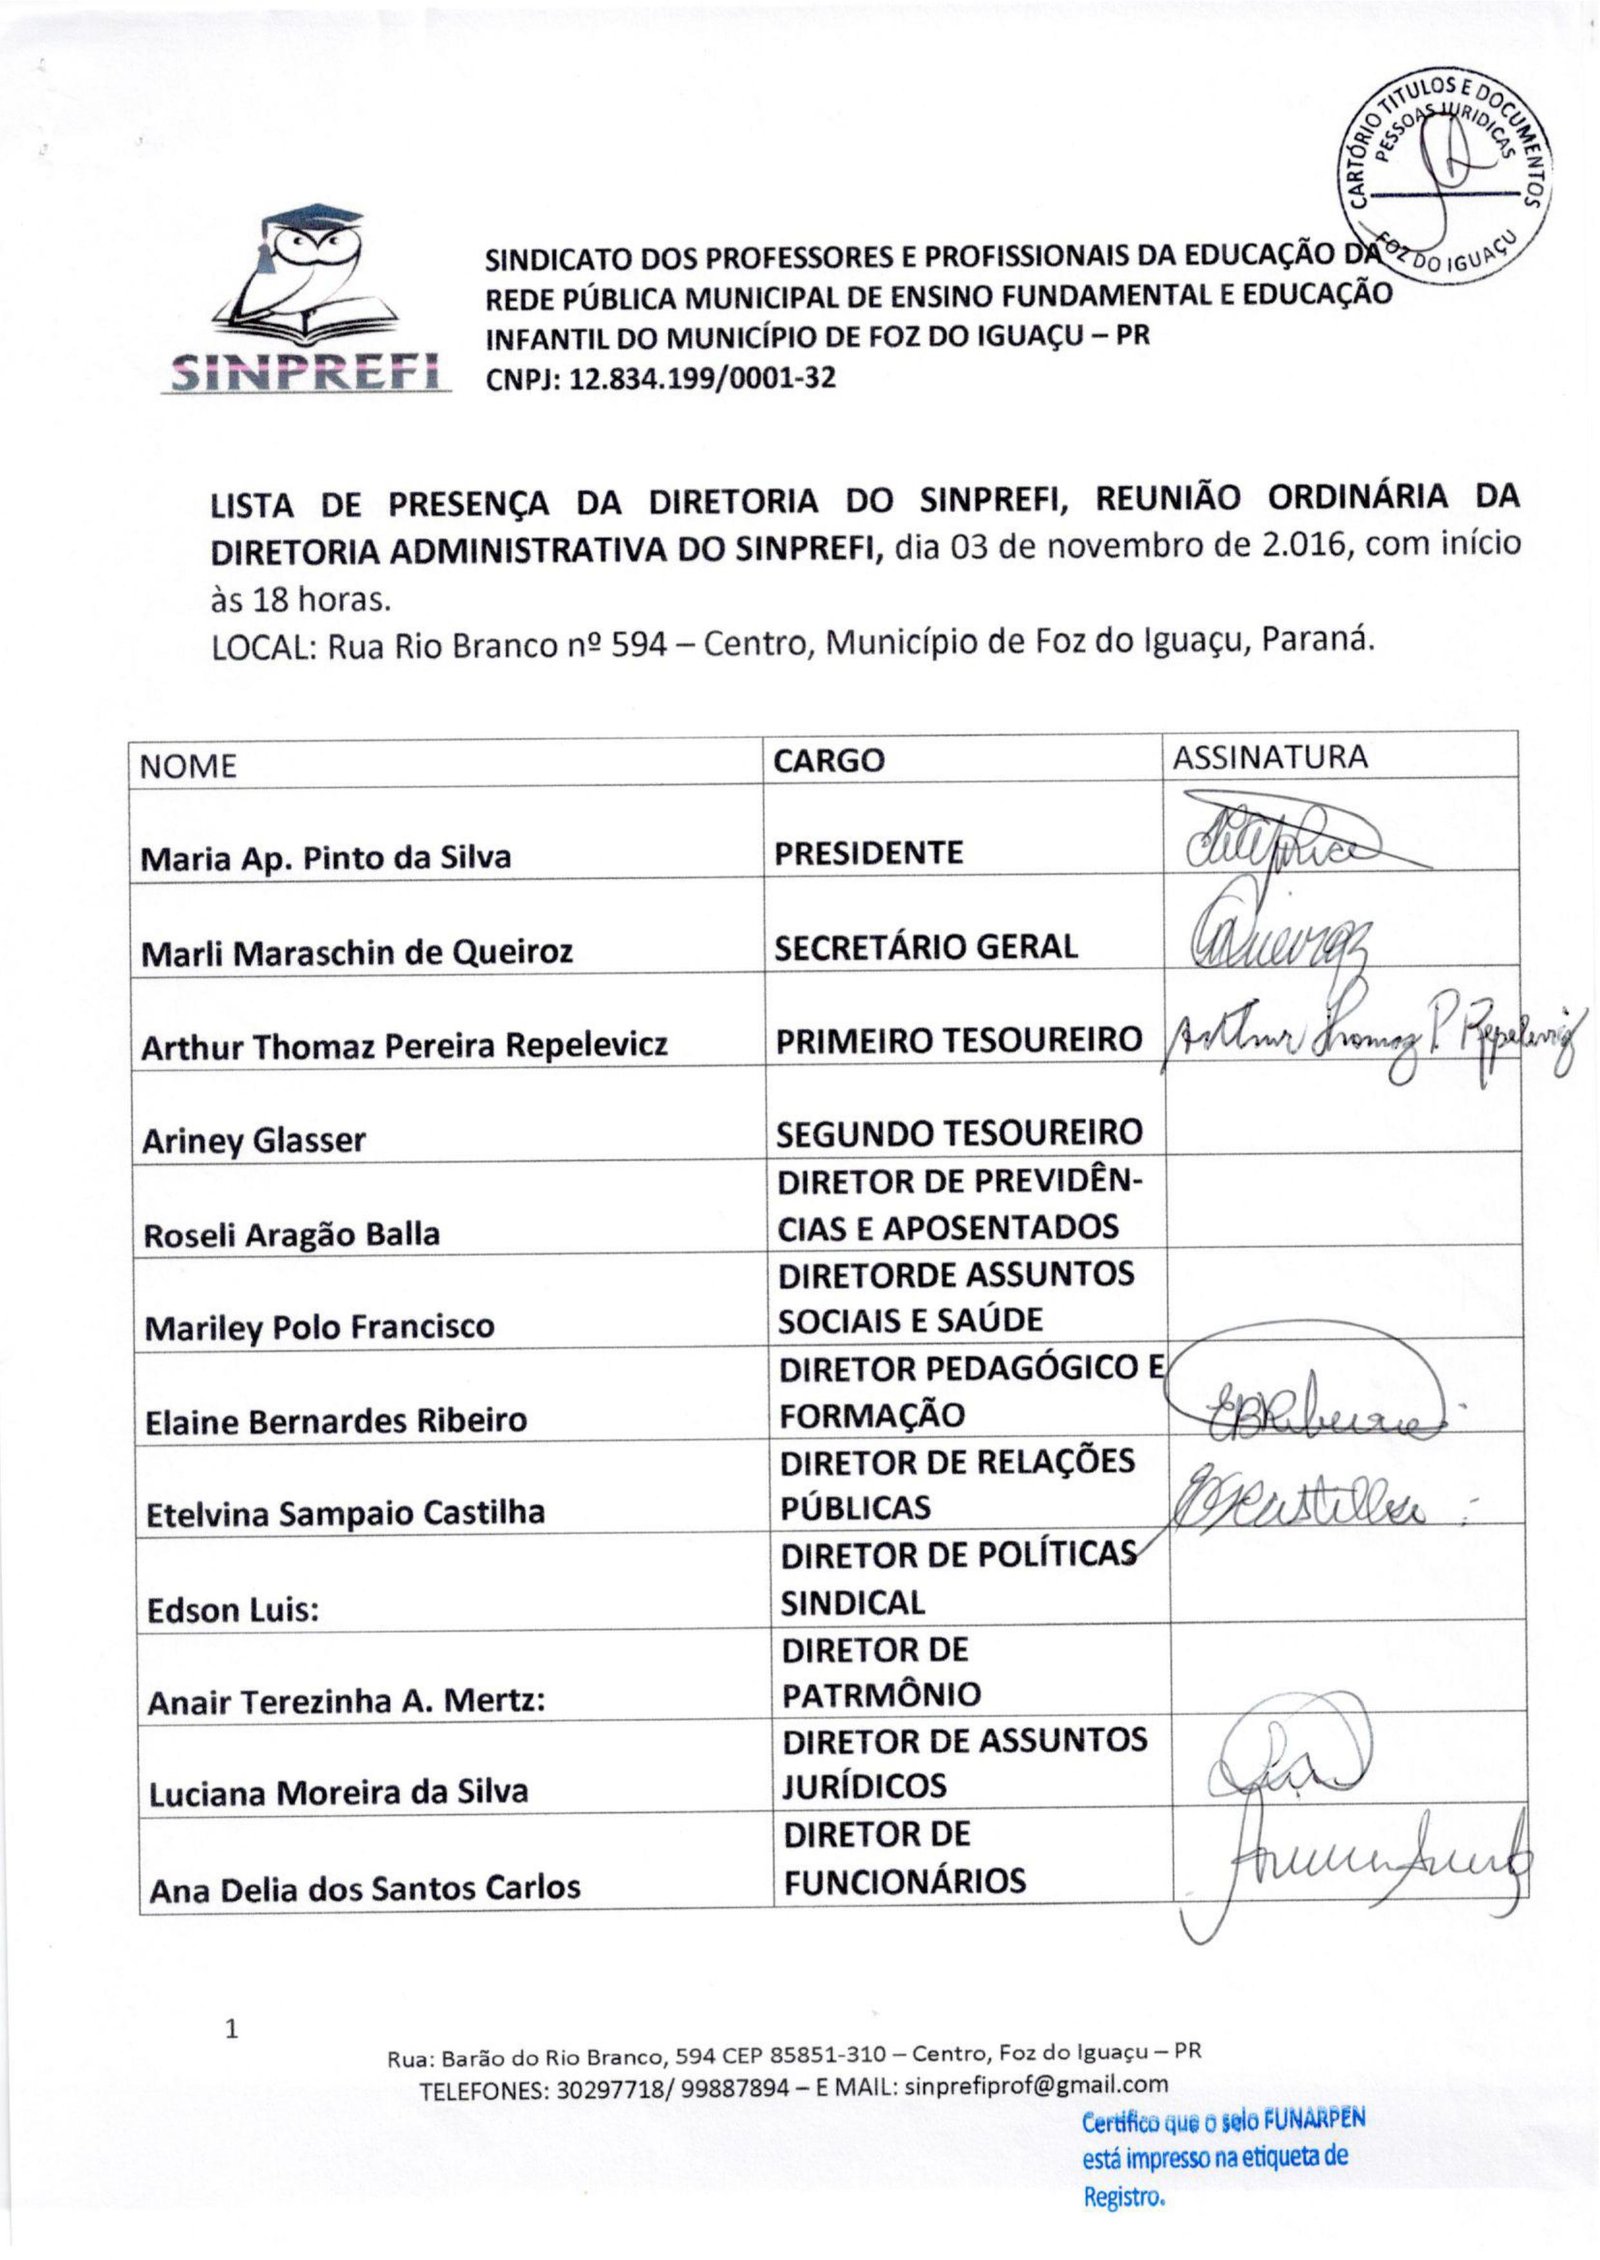 CARTÓRIO TITULOS E DOCUMENTOS
PESSOAS JURIDICAS
FOZ DO IGUAÇU
SINPREFI
SINDICATO DOS PROFESSORES E PROFISSIONAIS DA EDUCAÇÃO DA
REDE PÚBLICA MUNICIPAL DE ENSINO FUNDAMENTAL E EDUCAÇÃO
INFANTIL DO MUNICÍPIO DE FOZ DO IGUAÇU – PR
CNPJ: 12.834.199/0001-32
LISTA DE PRESENÇA DA DIRETORIA DO SINPREFI, REUNIÃO ORDINÁRIA DA
DIRETORIA ADMINISTRATIVA DO SINPREFI, dia 03 de novembro de 2.016, com início
às 18 horas.
LOCAL: Rua Rio Branco nº 594 – Centro, Município de Foz do Iguaçu, Paraná.
NOME CARGO ASSINATURA
Maria Ap. Pinto da Silva PRESIDENTE
Marli Maraschin de Queiroz SECRETÁRIO GERAL
Arthur Thomaz Pereira Repelevicz PRIMEIRO TESOUREIRO Arthur Thomaz P. Repelevicz
Ariney Glasser SEGUNDO TESOUREIRO
DIRETOR DE PREVIDÊN-
Roseli Aragão Balla CIAS E APOSENTADOS
DIRETORDE ASSUNTOS
Mariley Polo Francisco SOCIAIS E SAÚDE
DIRETOR PEDAGÓGICO E
Elaine Bernardes Ribeiro FORMAÇÃO
DIRETOR DE RELAÇÕES
Etelvina Sampaio Castilha PÚBLICAS
DIRETOR DE POLÍTICAS
Edson Luis: SINDICAL
DIRETOR DE
Anair Terezinha A. Mertz: PATRMÔNIO
DIRETOR DE ASSUNTOS
Luciana Moreira da Silva JURÍDICOS
DIRETOR DE
Ana Delia dos Santos Carlos FUNCIONÁRIOS
1
Rua: Barão do Rio Branco, 594 CEP 85851-310 – Centro, Foz do Iguaçu – PR
TELEFONES: 30297718/ 99887894 – E MAIL: sinprefiprof@gmail.com
Certifico que o selo FUNARPEN
está impresso na etiqueta de
Registro.